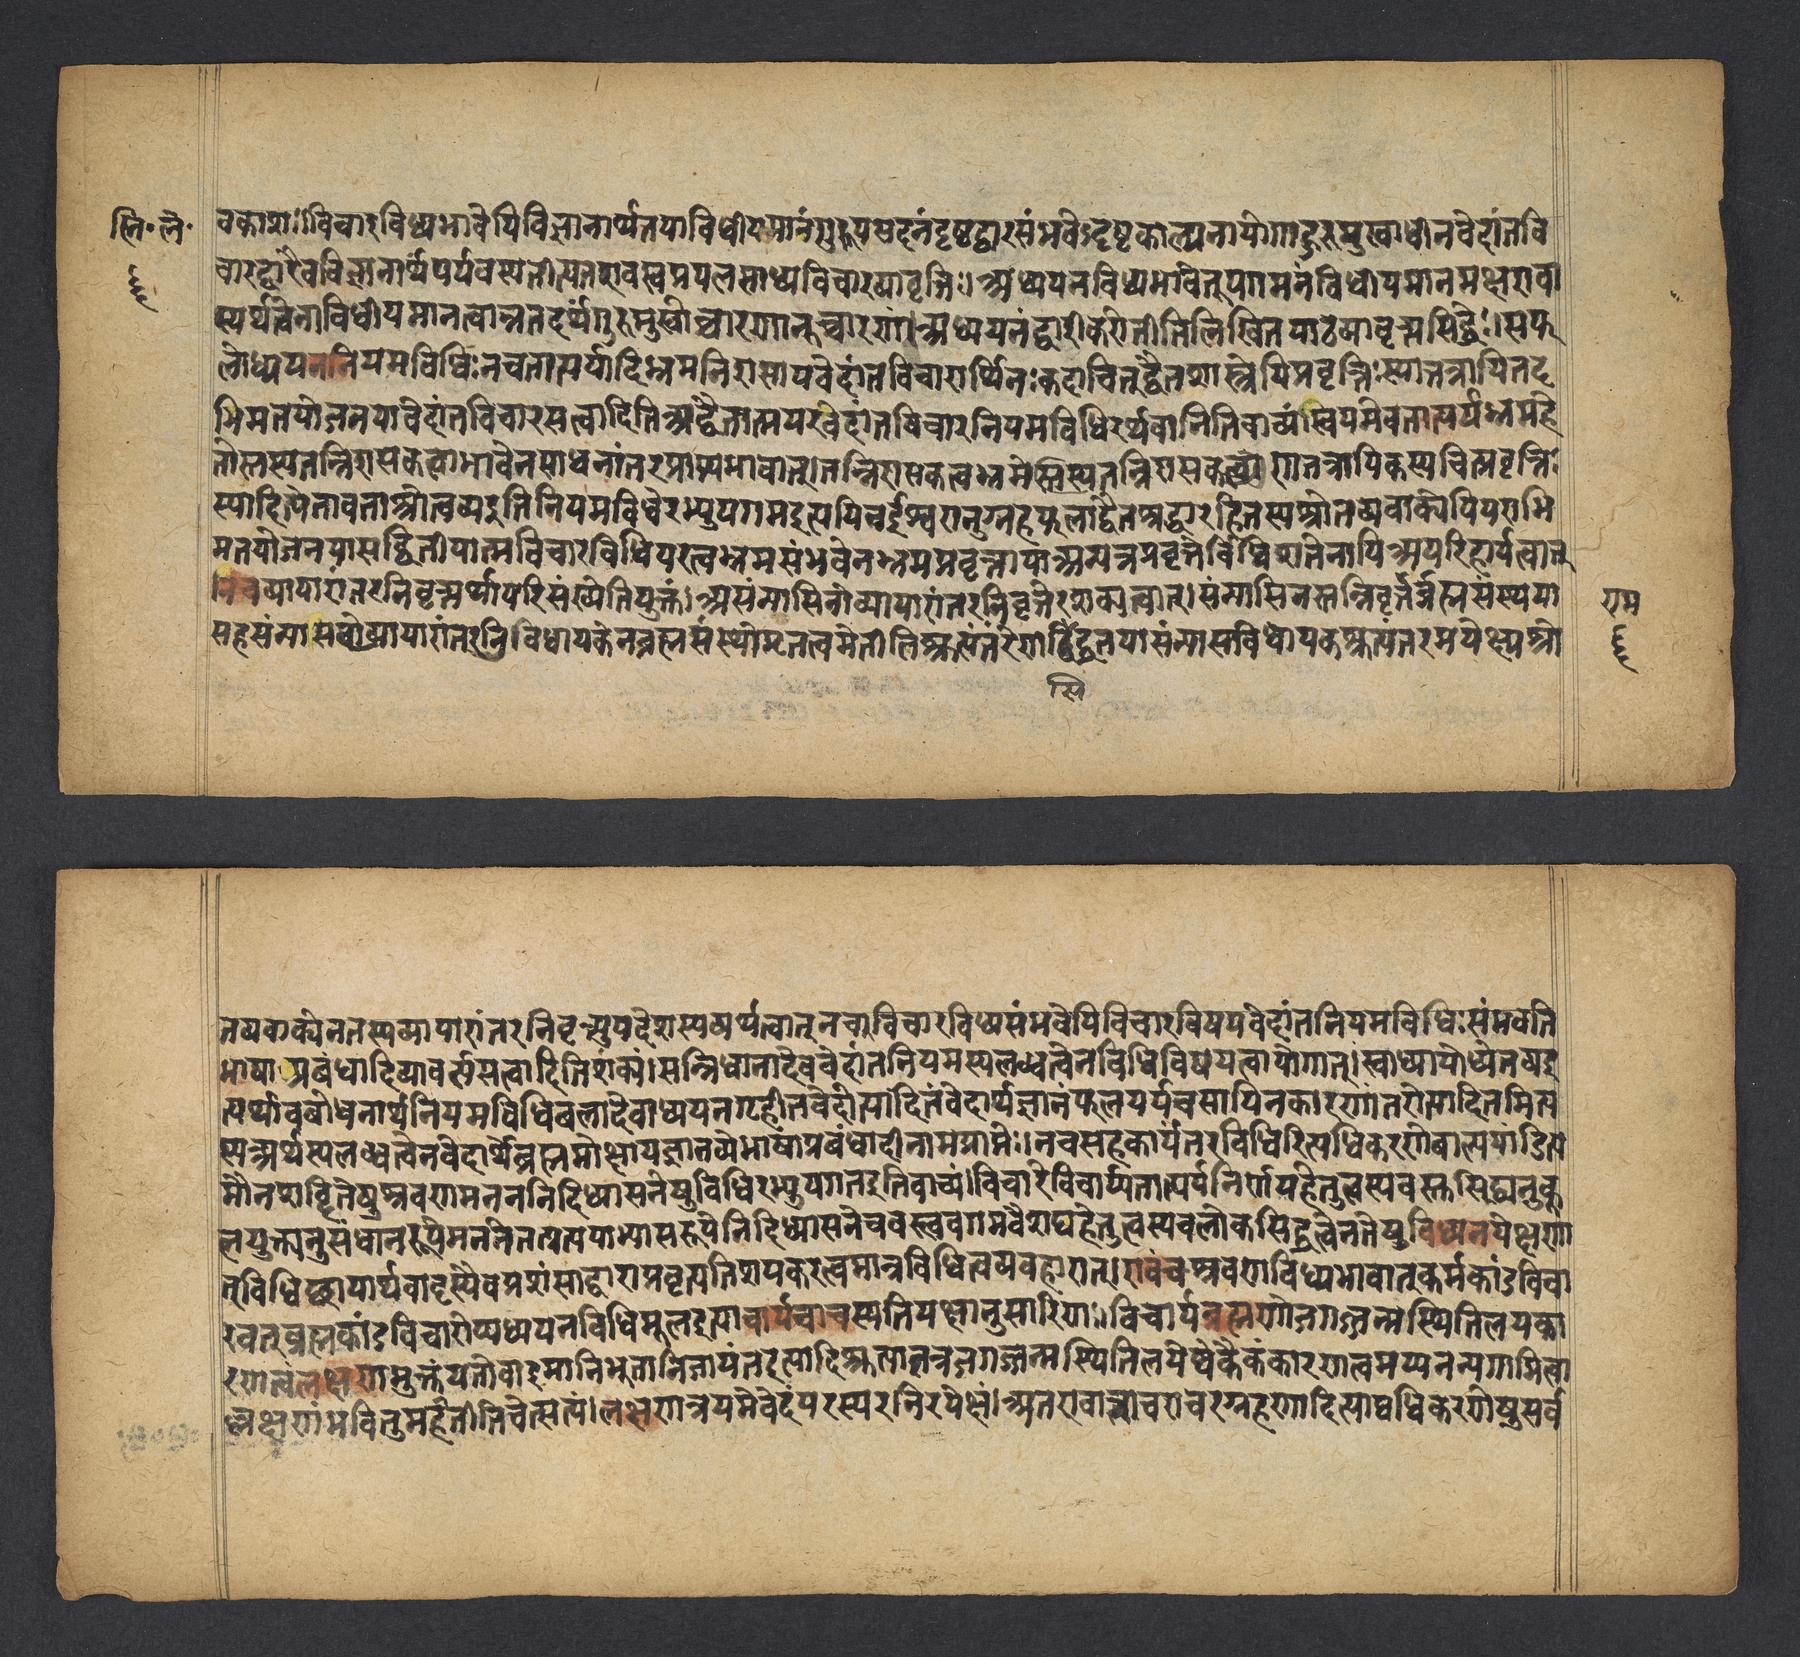 सि॰ले॰
६
वकाशः।विचारविध्यभावेपिविज्ञानार्थतयाविधीयमानंगुरूपसदनंदृष्टद्वारसंभवेऽदृष्टकाल्पनायोगाद्गुरुमुखाधीनवेदांतवि
चारद्वारैवविज्ञानार्थंपर्यवस्यतीत्यतएवस्वप्रयत्नसाध्यविचारव्यावृत्तिः।अध्ययनविध्यभावेतूपगमनंविधीयमानमक्षरावा
प्त्यर्थत्वेनाविधीयमानत्वान्नतदर्थगुरुमुखोच्चारणानूच्चारणं।अध्ययनंद्वारीकरोतीतिलिखितपाठव्यावृत्त्यसिद्धेः।सफ
लोध्ययननियमविधिः नचतात्पर्यादिभ्रमनिरासायवेदांतविचारार्थिनःकदाचित्द्वैतशास्त्रेपिप्रवृत्तिःस्यात्तत्रापितद
भिमतयोजनयावेदांतविचारसत्वादितिअद्वैतात्मपरवेदांतविचारनियमविधिरर्थवानितिवाच्यंस्वयमेवतात्पर्यभ्रमहे
तोस्तस्यतन्निरासकत्वाभावेनसाधनांतरप्राप्त्यभावात्।तन्निरासकत्वभ्रमेसतितस्यतन्निरासकत्वा एतत्रापिकस्यचित्प्रवृत्तिः
स्यादित्येतावताश्रोतव्यइतिनियमविधेरभ्युपगमइत्यपिनईश्वरानुग्रहफलाद्वैतश्रद्धारहितस्यश्रोतव्यवाक्येपिपराभि
मतयोजनयासद्वितीयात्मविचारविधिपरत्वभ्रमसंभवेनभ्रमप्रवृत्तायाअन्यत्रप्रवृत्तेर्विधिशतेनापिअपरिहार्यत्वात्
नचव्यापारांतरनिवृत्त्यर्थापरिसंख्येतियुक्तं।असंन्यासिनोव्यापारांतरनिवृत्तेरशक्यत्वात्।संन्यासिनस्तन्निवृत्तेर्ब्रह्मसंस्थया
सहसंन्यासवोव्यापारांतरनिविधायकेनब्रह्मसंस्थोमृतत्वमेतीतिश्रुत्यंतरेणसिद्धतयासंन्यासविधायकश्रुत्यंतरमपेक्ष्यश्रो
राम
६
सि
तव्यवाक्येनतस्यव्यापारांतरनिवृत्त्युपदेशस्यव्यर्थत्वात्नचाविचारविध्यसंभवेपिविचारविषयवेदांतनियमविधिःसंभवति
भाषाप्रबंधादिव्यावर्त्यसत्वादितिशंक्यं।सन्निधानादेववेदांतनियमस्यलब्धत्वेनविधिविषयत्वायोगात्।स्वाध्यायोध्येतव्यइ
त्यर्थावबोधनार्थनियमविधिबलादेवाध्ययनगृहीतवेदोत्पादितंवेदार्थज्ञानंफलपर्यवसायिनकारणांतरोत्पादितमित्य
स्यअर्थस्यलब्धत्वेनवेदार्थेब्रह्ममोक्षायज्ञातव्येभाषाप्रबंधादीनामप्राप्तेः।नचसहकार्यंतरविधिरित्यधिकरणेबाल्यपांडित्य
मौनशब्दितेषुश्रवणमनननिदिध्यासनेषुविधिरभ्युपगतइतिवाच्यं।विचारेविचार्यतात्पर्यनिर्णयहेतुत्वस्यवस्तुसिद्ध्यनुकू
लयुक्त्यनुसंधानरूपेमननेतत्प्रत्ययाभ्यासरूपेनिदिध्यासनेचवस्त्ववगमवैशद्यहेतुत्वस्यचलोकसिद्धत्वेनतेषुविध्यनपेक्षणा
त्विधिच्छायार्थवादस्यैवप्रशंसाद्वाराप्रवृत्त्यतिशयकरत्वमात्रविधित्वव्यवहारात्।एवंचश्रवणविध्यभावात्कर्मकांडविचा
रवत्ब्रह्मकांडविचारोप्यध्ययनविधिमूलइत्याचार्यवाचस्पतिपक्षानुसारिणः।विचार्यब्रह्मणोजगज्जन्मस्थितिलयका
रणत्वंलक्षणमुक्तंयतोवाइमानिभूतानिजायंतइत्यादिश्रुत्यात्तत्रजगज्जन्मस्थितिलयेष्वेकैकंकारणत्वमप्यनन्यगामित्वा
ल्लक्षणंभवितुमर्हतीतिचेत्सत्यं।लक्षणत्रयमेवेदंपरस्परनिरपेक्षं।अतएवात्ताचराचरग्रहणादित्याद्यधिकरणेषुसर्व